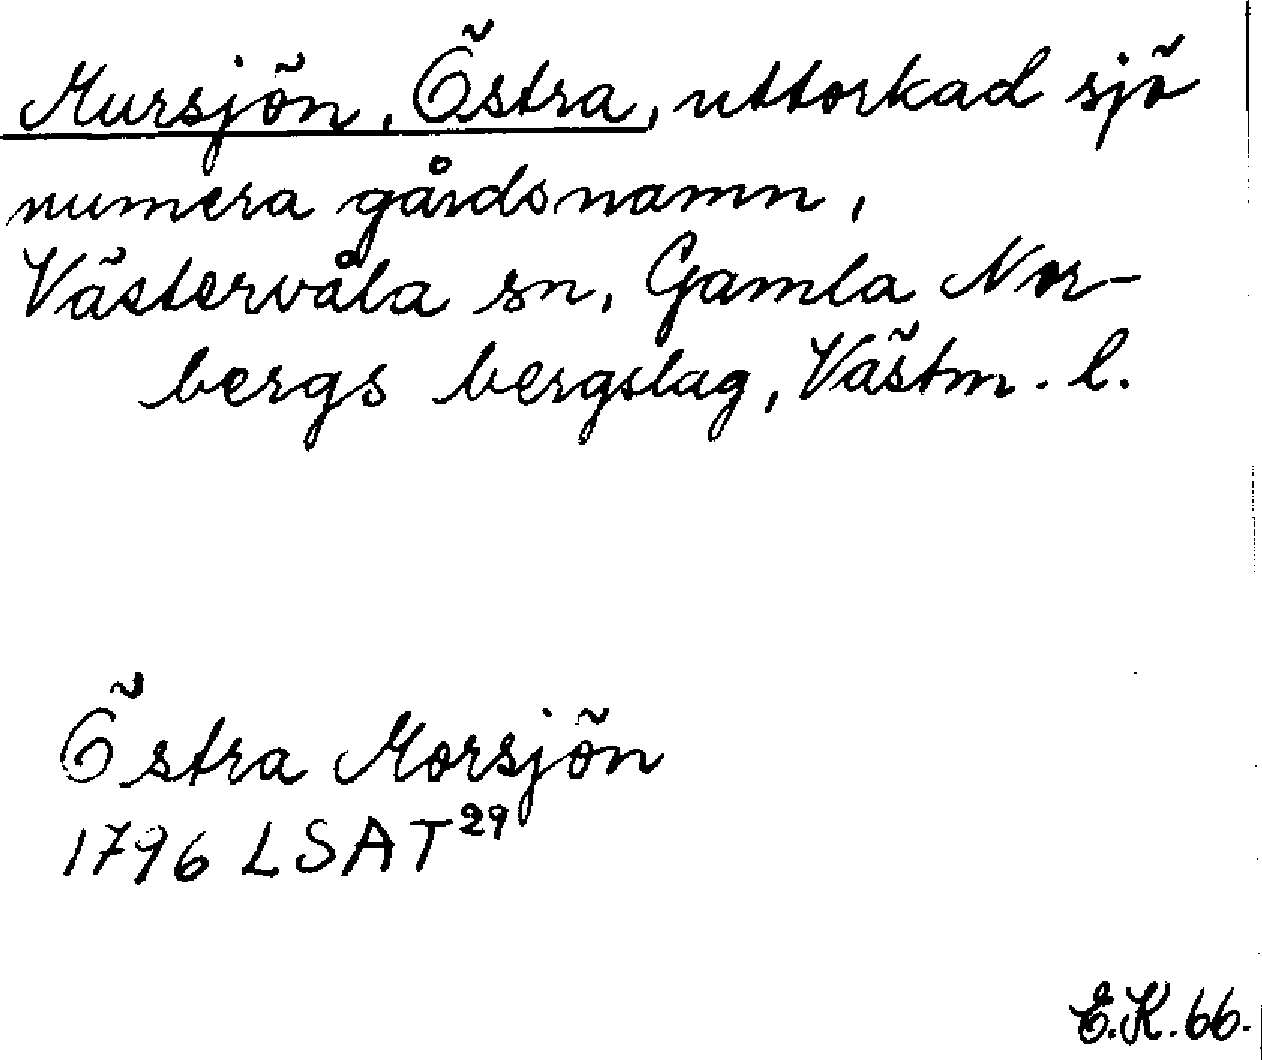 Mursjön, Östra, uttorkad sjö
numera gårdsnamn,
Västervåla sn, Gamla Nor-
bergs bergslag, Västm. l.
Östra Morsjön
1796 LSA T²⁹
E.K. 66.